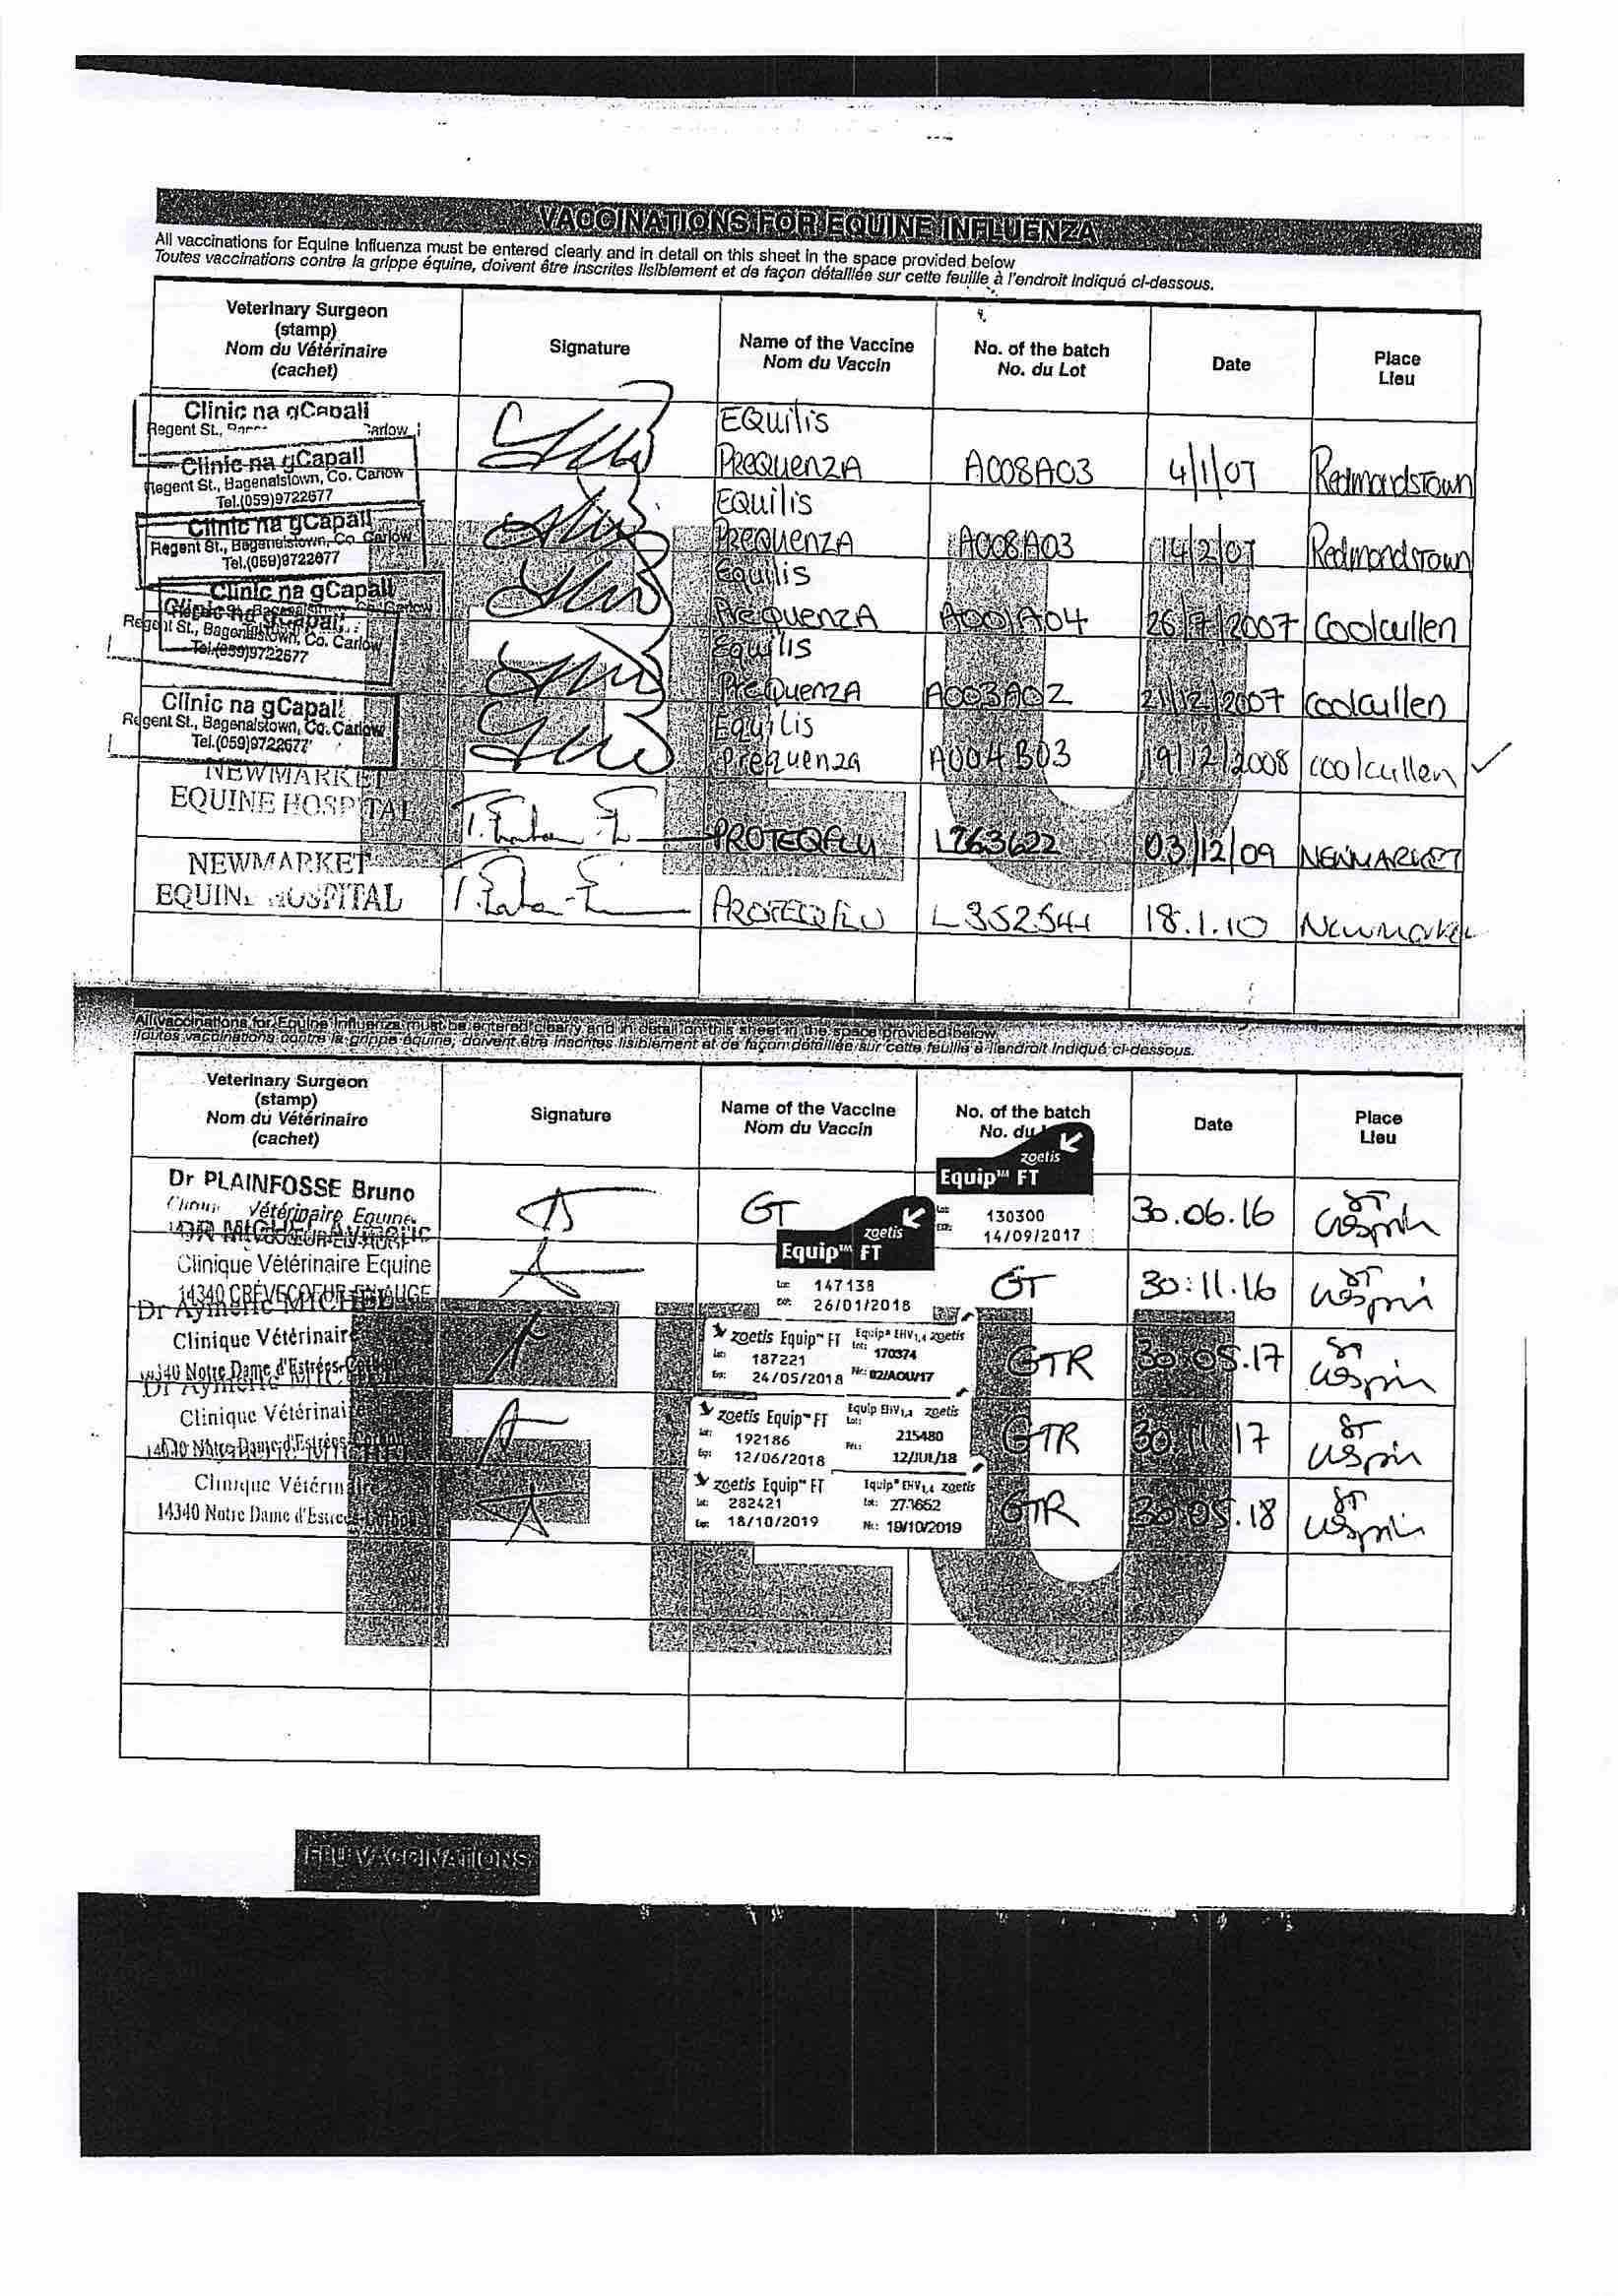 VACCINATIONS FOR EQUINE INFLUENZA
All vaccinations for Equine Influenza must be entered clearly and in detail on this sheet in the space provided below
Toutes vaccinations contre la grippe équine, doivent être inscrites lisiblement et de façon détaillée sur cette feuille à l'endroit indiqué ci-dessous.
Veterinary Surgeon
(stamp)
Nom du Vétérinaire
(cachet)
Signature
Name of the Vaccine
Nom du Vaccin
No. of the batch
No. du Lot
Date
Place
Lieu
Clinic na gCapall
Regent St., Carlow
EQuilis
PREQuenZA A008A03 4/1/07 Redmondstown
Clinic na gCapall
Regent St., Bagenalstown, Co. Carlow
Tel.(059)9722677
EQuilis
PREQuenZA A008A03 14/2/07 Redmondstown
Clinic na gCapall
Regent St., Bagenalstown, Co. Carlow
Tel.(059)9722677
Equilis
PrequenzA A001A04 26/7/2007 Coolcullen
Clinic na gCapall
Clinic na gCapall
Regent St., Bagenalstown, Co. Carlow
Tel.(059)9722677
Equilis
PrequenzA A003A02 21/12/2007 Coolcullen
Clinic na gCapall
Regent St., Bagenalstown, Co. Carlow
Tel.(059)9722677
Equilis
Prequenza A004B03 19/12/2008 Coolcullen
NEWMARKET
EQUINE HOSPITAL
PROTEQFLU L263622 03/12/09 NEWMARKET
NEWMARKET
EQUINE HOSPITAL
PROTEQFLU L352544 18.1.10 Newmarket
FLU
All vaccinations for Equine Influenza must be entered clearly and in detail on this sheet in the space provided below
Toutes vaccinations contre la grippe équine, doivent être inscrites lisiblement et de façon détaillée sur cette feuille à l'endroit indiqué ci-dessous.
Veterinary Surgeon
(stamp)
Nom du Vétérinaire
(cachet)
Signature
Name of the Vaccine
Nom du Vaccin
No. of the batch
No. du
Date
Place
Lieu
Dr PLAINFOSSE Bruno
Vétérinaire Equine
GT
zoetis
Equip™ FT
Lot: 130300
EXP: 14/09/2017
30.06.16
ST
Clinique Vétérinaire Equine
14340 CRÈVECOEUR-EN-AUGE
zoetis
Equip™ FT
Lot: 147138
EXP: 26/01/2018
GT 30.11.16
ST
Dr Aymeric MICHEL
Clinique Vétérinaire
14340 Notre Dame d'Estrées-Corbon
zoetis Equip™ FT
Lot: 187221
Exp: 24/05/2018
Equip® EHV1,4 zoetis
Lot: 170374
02/AOU/17
GTR 30.05.17
ST
Dr Aymeric
Clinique Vétérinaire
14340 Notre Dame d'Estrées
zoetis Equip™ FT
Lot: 192186
Exp: 12/06/2018
Equip EHV1,4 zoetis
Lot: 215480
12/JUL/18
GTR 30.11.17
ST
Clinique Vétérinaire
14340 Notre Dame d'Estrées-Corbon
zoetis Equip™ FT
Lot: 282421
Exp: 18/10/2019
Equip® EHV1,4 zoetis
Lot: 273652
19/10/2019
GTR 30.05.18
ST
FLU
FLU VACCINATIONS